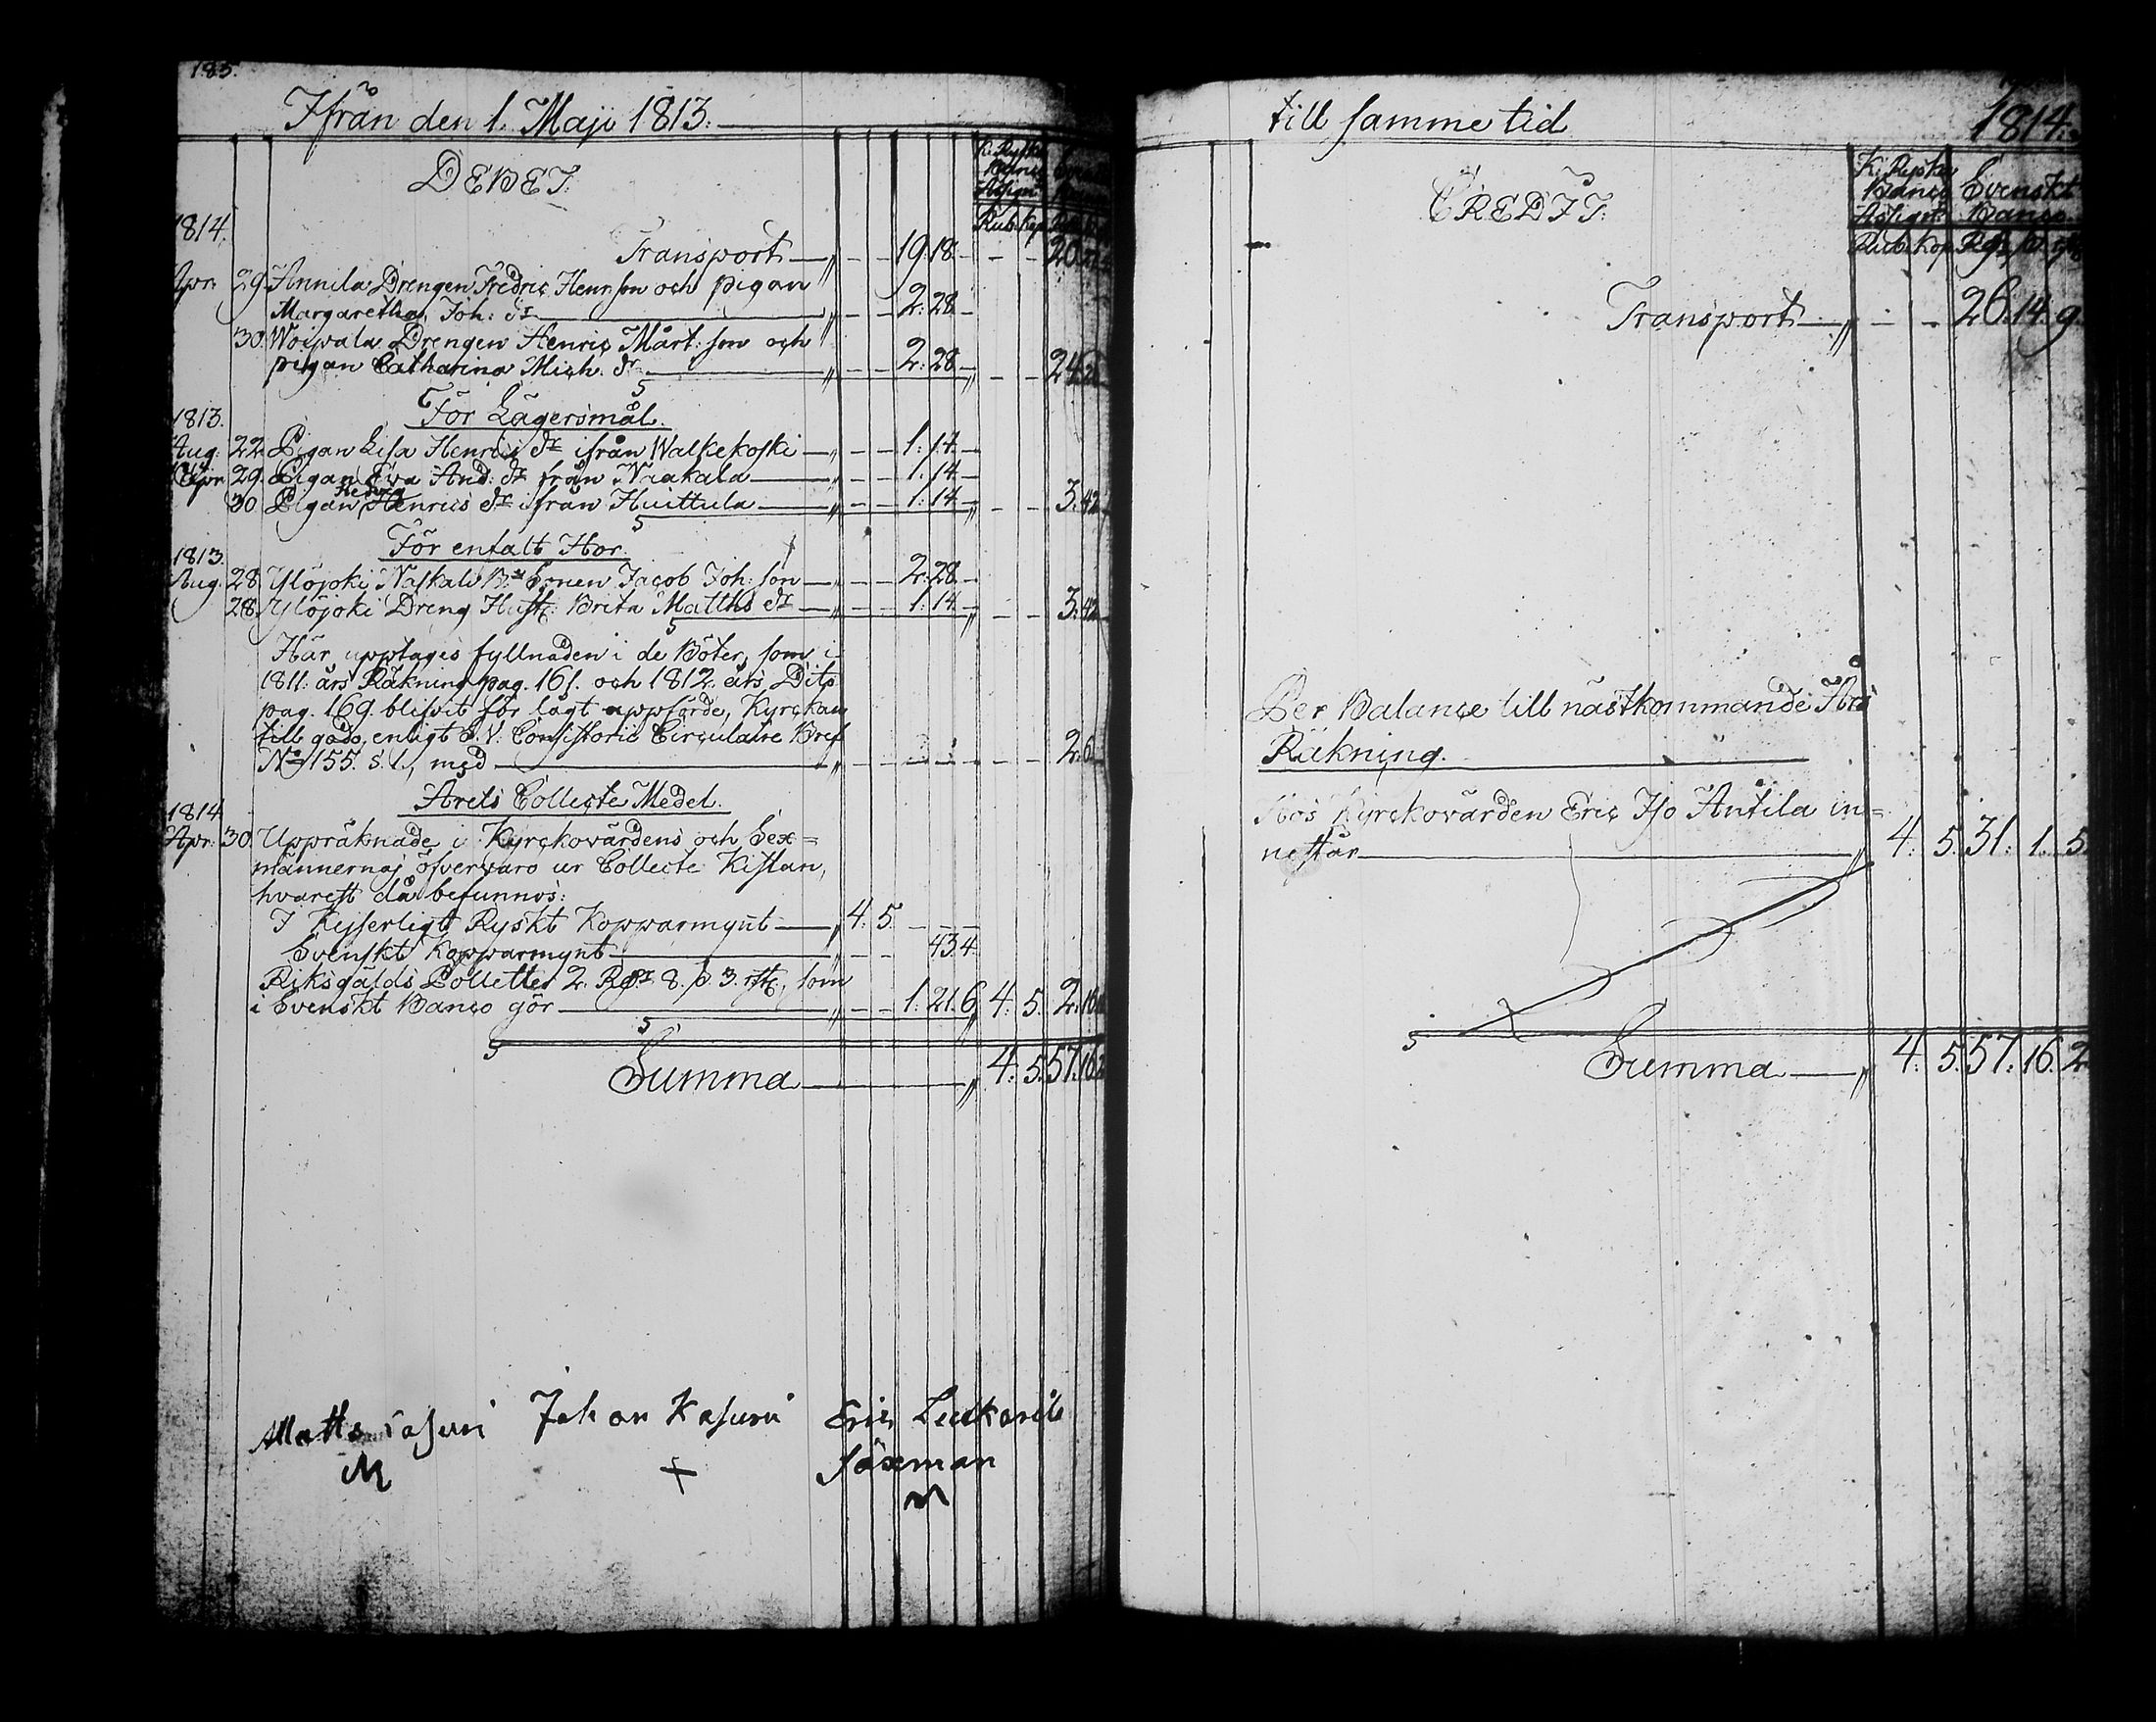 185.
Ifrån den 1. Maji 1813.
DEBET.
K. Ryska
Banco
Assign:
Rub. Kop.
1814.
Transport 19. 18. 20.
Apr. 29. Annila Drengen Fredric Henr. son och pigan
Margaretha Joh: dr 2. 28.
30. Woipala Drengen Henric Mårt: son och
pigan Catharina Mich. dr 2. 28. 24.
För Lägersmål.
1813.
Aug: 22. Pigan Lisa Henrics dr ifrån Walkekoski 1. 14.
1814
Apr. 29. Pigan Eva And: dr från Naakala 1. 14.
30 Pigan Hedvig Henrics dr ifrån Huittula 1. 14. 3. 42
För enfalt Hor.
1813.
Aug. 28. Ylöjoki Naskali Bde Sonen Jacob Joh: son 2. 28.
28. Ylöjoki Dreng Hust: Brita Matths dr 1. 14. 3. 42
Här upptages fyllnaden i de Böter, som i
1811: års Räkning pag. 161. och 1812. års Dito
pag. 169. blifvit för lågt uppförde, Kyrckan
till godo, enligt E. V. Consistorii Circulaire Bref
No 155. s. 1., med 2. 6
Årets Collecte Medel.
1814
Apr: 30. Uppräknade i Kyrckovärdens och Sex=
männernas öfvervaro ur Collecte Kistan,
hvarest då befunnos:
I Kejserligt Ryskt Kopparmynt 4. 5.
Svenskt Kopparmynt 43. 4
Riksgälds Polletter 2. Rdr 8. s. 3. rst., som
i Svenskt Banco gör 1. 21. 6 4. 5. 2. 16
Summa 4. 5. 57. 16. 2
Matts Kasuri Johan Kasuri Eric
Säxman
M + M
till samme tid 1814.
CREDIT.
K. Ryska
Banco
Assignt:
Svenskt
Banco.
Rub. Kop. Rdr s. rst
Transport 26. 14. 9.
Per Balance till nästkommande Års
Räkning.
Hos Kyrckovärden Eric Iso Antila in=
nestår 4. 5. 31. 1. 5.
Summa 4. 5. 57. 16. 2